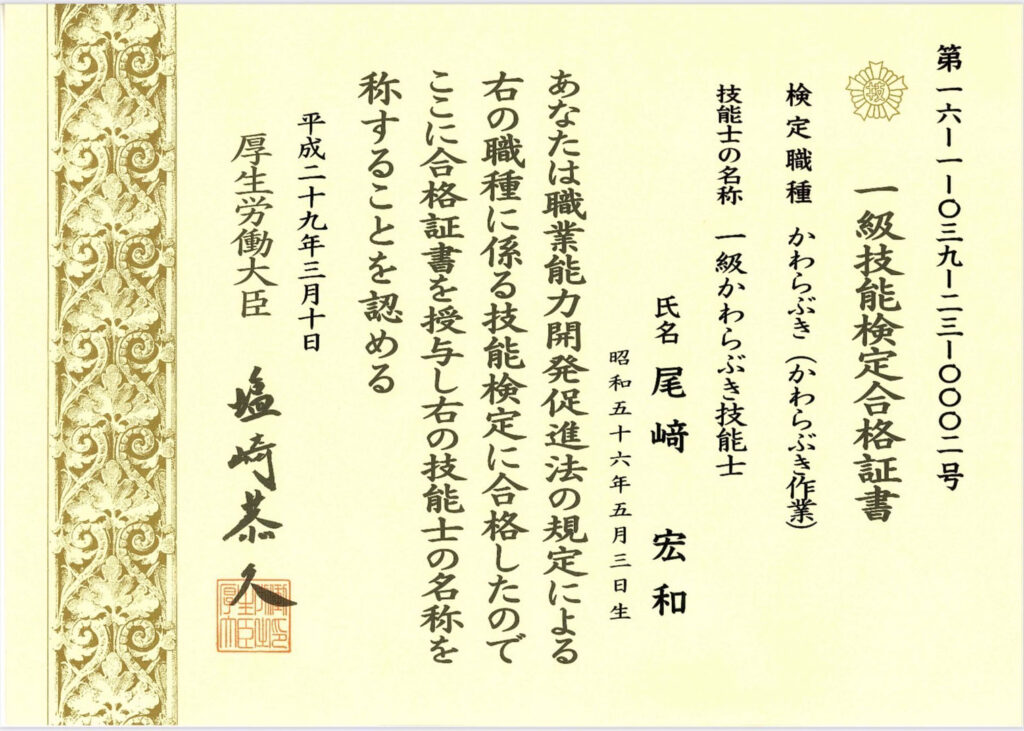 第一六ー一ー〇三九ー二三ー〇〇〇二号
一級技能検定合格証書
検定職種 かわらぶき(かわらぶき作業)
技能士の名称 一級かわらぶき技能士
氏名 尾﨑 宏和
昭和五十六年五月三日生
あなたは職業能力開発促進法の規定による
右の職種に係る技能検定に合格したので
ここに合格証書を授与し右の技能士の名称を
称することを認める
平成二十九年三月十日
厚生労働大臣 塩崎恭久